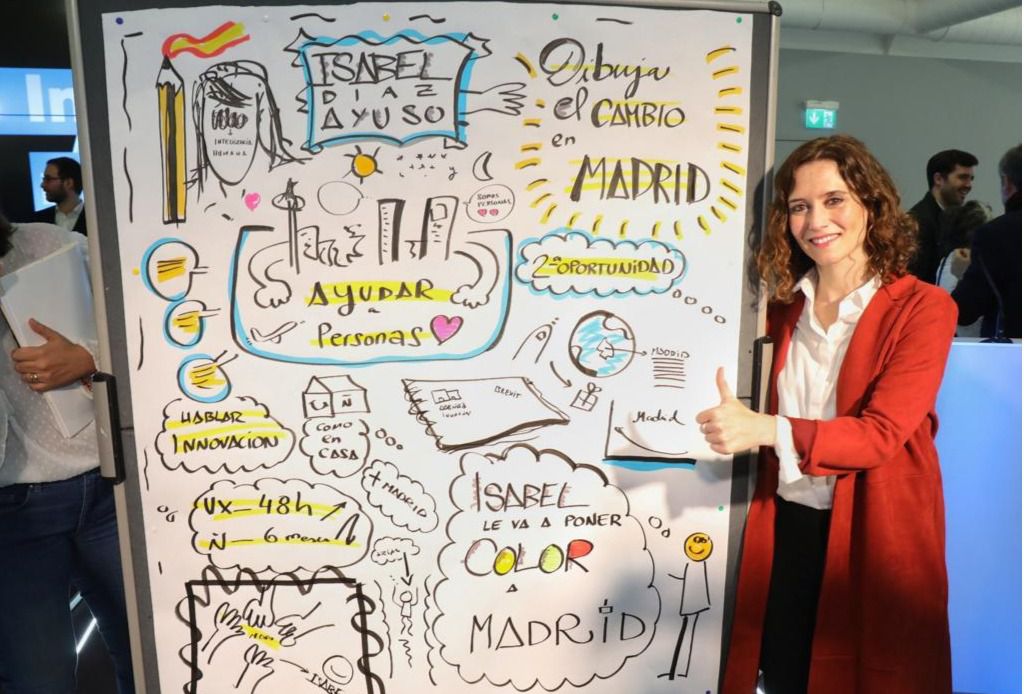 In
ISABEL
DIAZ
AYUSO
INTELIGENCIA
HUMANA
Dibuja
el CAMBIO
en
MADRID
SOMOS
PERSONAS
AYUDAR
a
Personas
2ª OPORTUNIDAD
MADRID
BREXIT
Madrid
HABLAR
INNOVACION
U Ñ
COMO
en
CASA
+ MADRID
UX_48h
Ñ_
ISABEL
LE VA A PONER
COLOR
A
MADRID